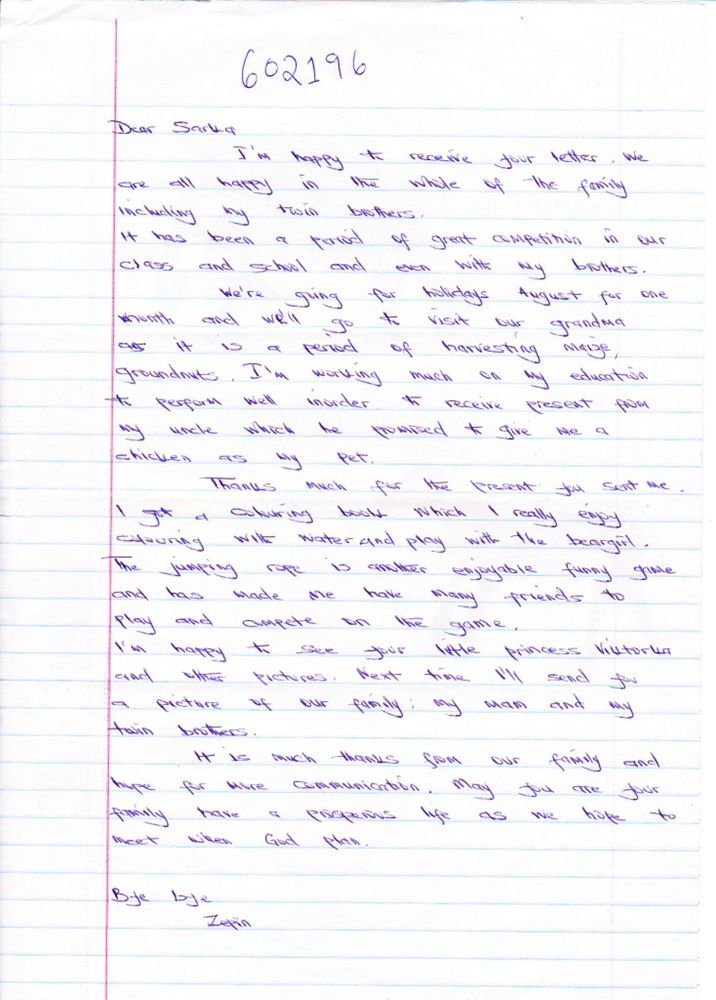 602196
Dear Sarka
I'm happy to receive your letter. We
are all happy in the whole of the family
including my twin brothers.
It has been a period of great competition in our
class and school and even with my brothers.
We're going for holidays August for one
month and we'll go to visit our grandma
as it is a period of harvesting maize,
groundnuts. I'm working much on my education
to perform well inorder to receive present from
my uncle which he promised to give me a
chicken as my pet.
Thanks much for the present you sent me.
I got a colouring book which I really enjoy
colouring with water and play with the beargirl.
The jumping rope is another enjoyable funny game
and has made me have many friends to
play and compete on the game.
I'm happy to see your little princess Viktorka
and other pictures. Next time I'll send you
a picture of our family: my mam and my
twin brothers.
It is much thanks from our family and
hope for more communication. May you are your
family have a prosperus life as we hope to
meet when God plan.
Bye bye
Zepin